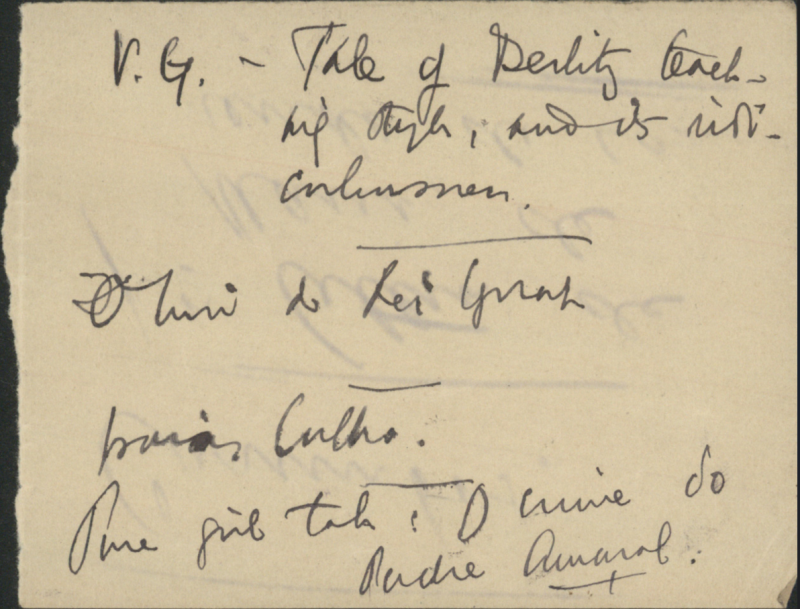 V. G. - Tale of Berlitz teach-
ing style, and its ridi-
culousness.
O livro do Rei Ignoto
Coelho.
Pure girl tale: O crime do
Padre Amaral.